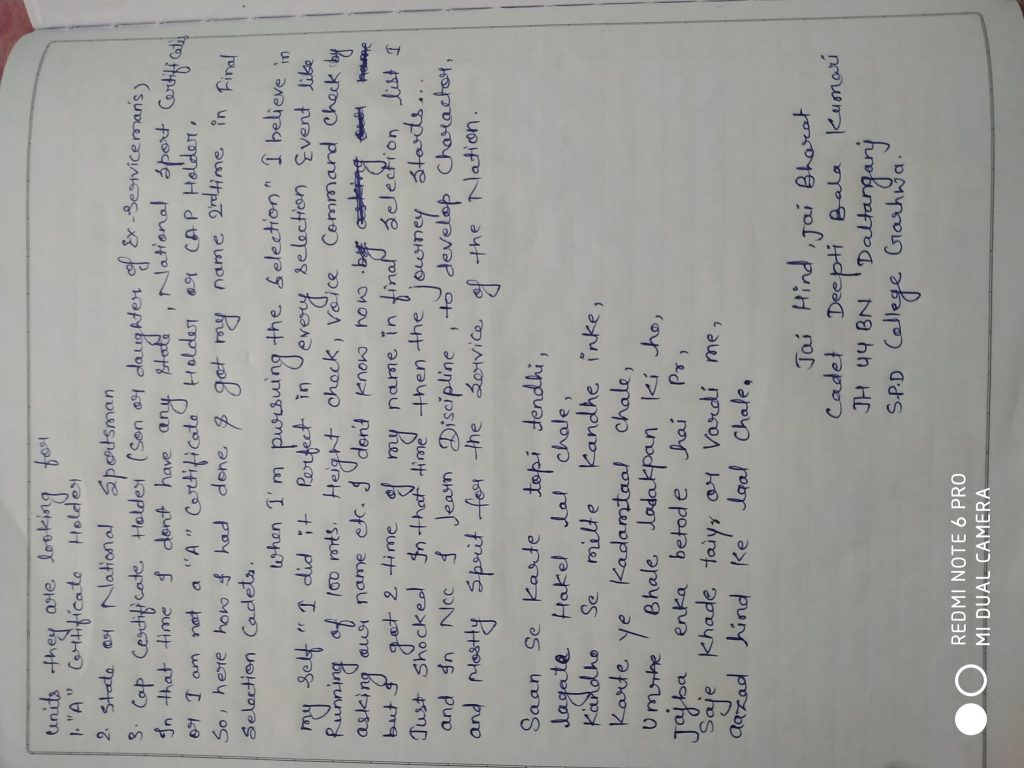 units they are looking for
1. "A" Certificate Holder
2. State or National Sportsman
3. Cap Certificate Holder (Son or daughter of Ex-Serviceman's)
In that time I dont have any State, National Sport Certificate
or I am not a "A" Certificate Holder or CAP Holder.
So, here how I had done & got my name 2nd time in Final
Selection Cadets.
When I'm pursuing the Selection" I believe in
my self" I did it Perfect in every selection Event like
Running of 100 mts. Height check, Voice Command check by
asking our name etc. I dont know how
but I got 2 time of my name in final Selection list I
Just Shocked In that time then the journey Starts...
and In Ncc I learn Discipline, to develop Character,
and Mostly Sprit for the Service of the Nation.
Saan Se Karte topi tendhi,
lagate Hakel lal chale,
Kandho Se milte Kandhe inke,
Karte Ye Kadamtaal chale,
Umrtne Bhale ladakpan Ki ho,
Jajba enka betode hai Pr,
Saje Khade taiyr or Vardi me,
aazad hind Ke laal Chale.
Jai Hind, Jai Bharat
Cadet Deepti Bala Kumari
JH 44 BN Daltanganj
S.P.D College Garhwa.
REDMI NOTE 6 PRO
MI DUAL CAMERA